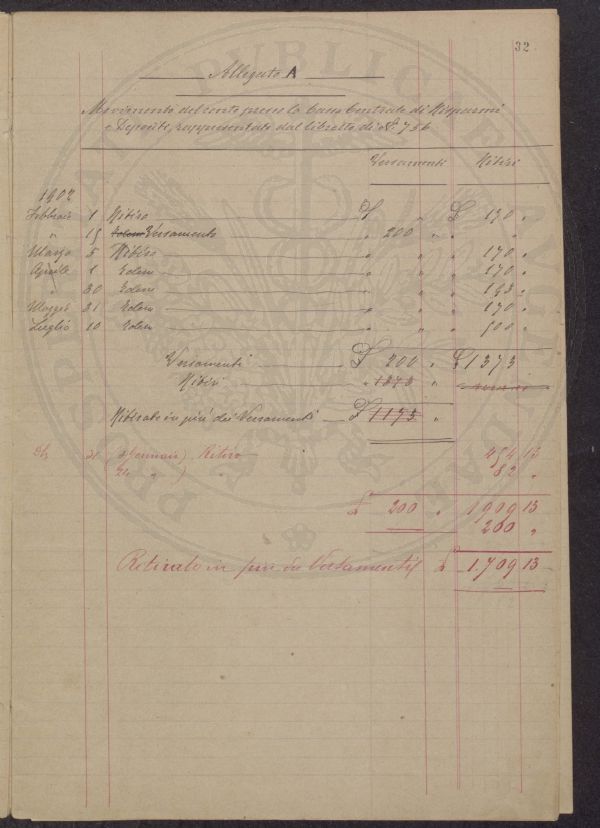 32
Allegato A
Movimento del conto presso la Cassa Centrale di Risparmi
e Depositi, rappresentato dal libretto di N. 756
Versamenti Ritiri
1902
Febbraio 1 Ritiro £ " £ 190 "
" 15 Versamento " 200 " " "
Marzo 5 Ritiro " " " 170 "
Aprile 1 Idem " " " 170 "
" 30 Idem " " "
Maggio 31 Idem " " " 170 "
Luglio 10 Idem " " " 500 "
Versamenti £ 200 " £ 1373
Ritiri " 1373 "
Ritirate in più dei Versamenti £ 1173 "
31 (Gennaio) Ritiro 454 13
" ) " 82 "
£ 200 " 1909 13
200 "
Retirate in più dei Versamenti £ 1.709 13